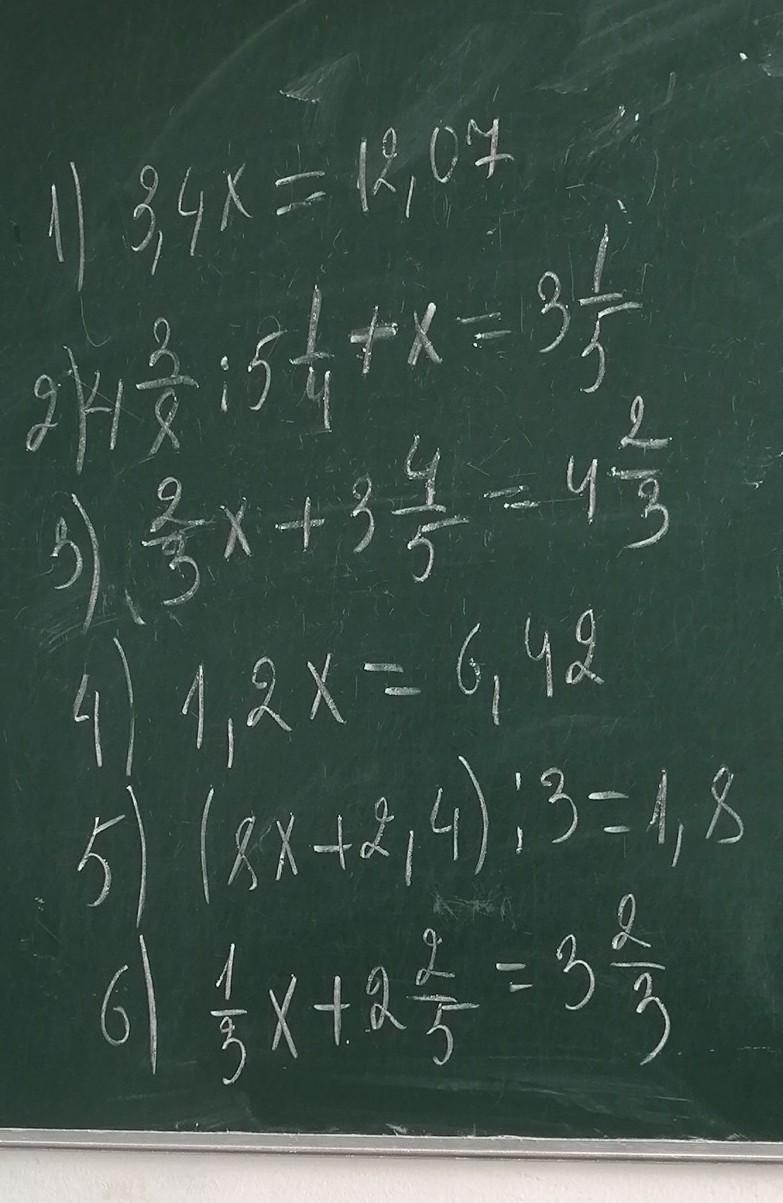 1) 3,4x = 12,07
2) 4 3/8 : 5 1/4 + x = 3 1/5
3) 2/3 x + 3 4/5 = 4 2/3
4) 1,2x = 6,42
5) (8x+2,4) : 3 = 1,8
6) 1/3 x + 2 2/5 = 3 2/3